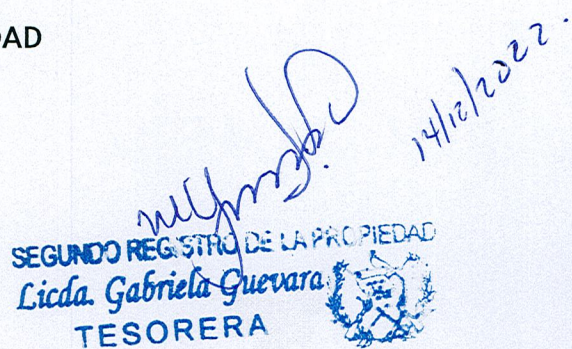 DAD
14/12/2022.
SEGUNDO REGISTRO DE LA PROPIEDAD
Licda. Gabriela Guevara
TESORERA